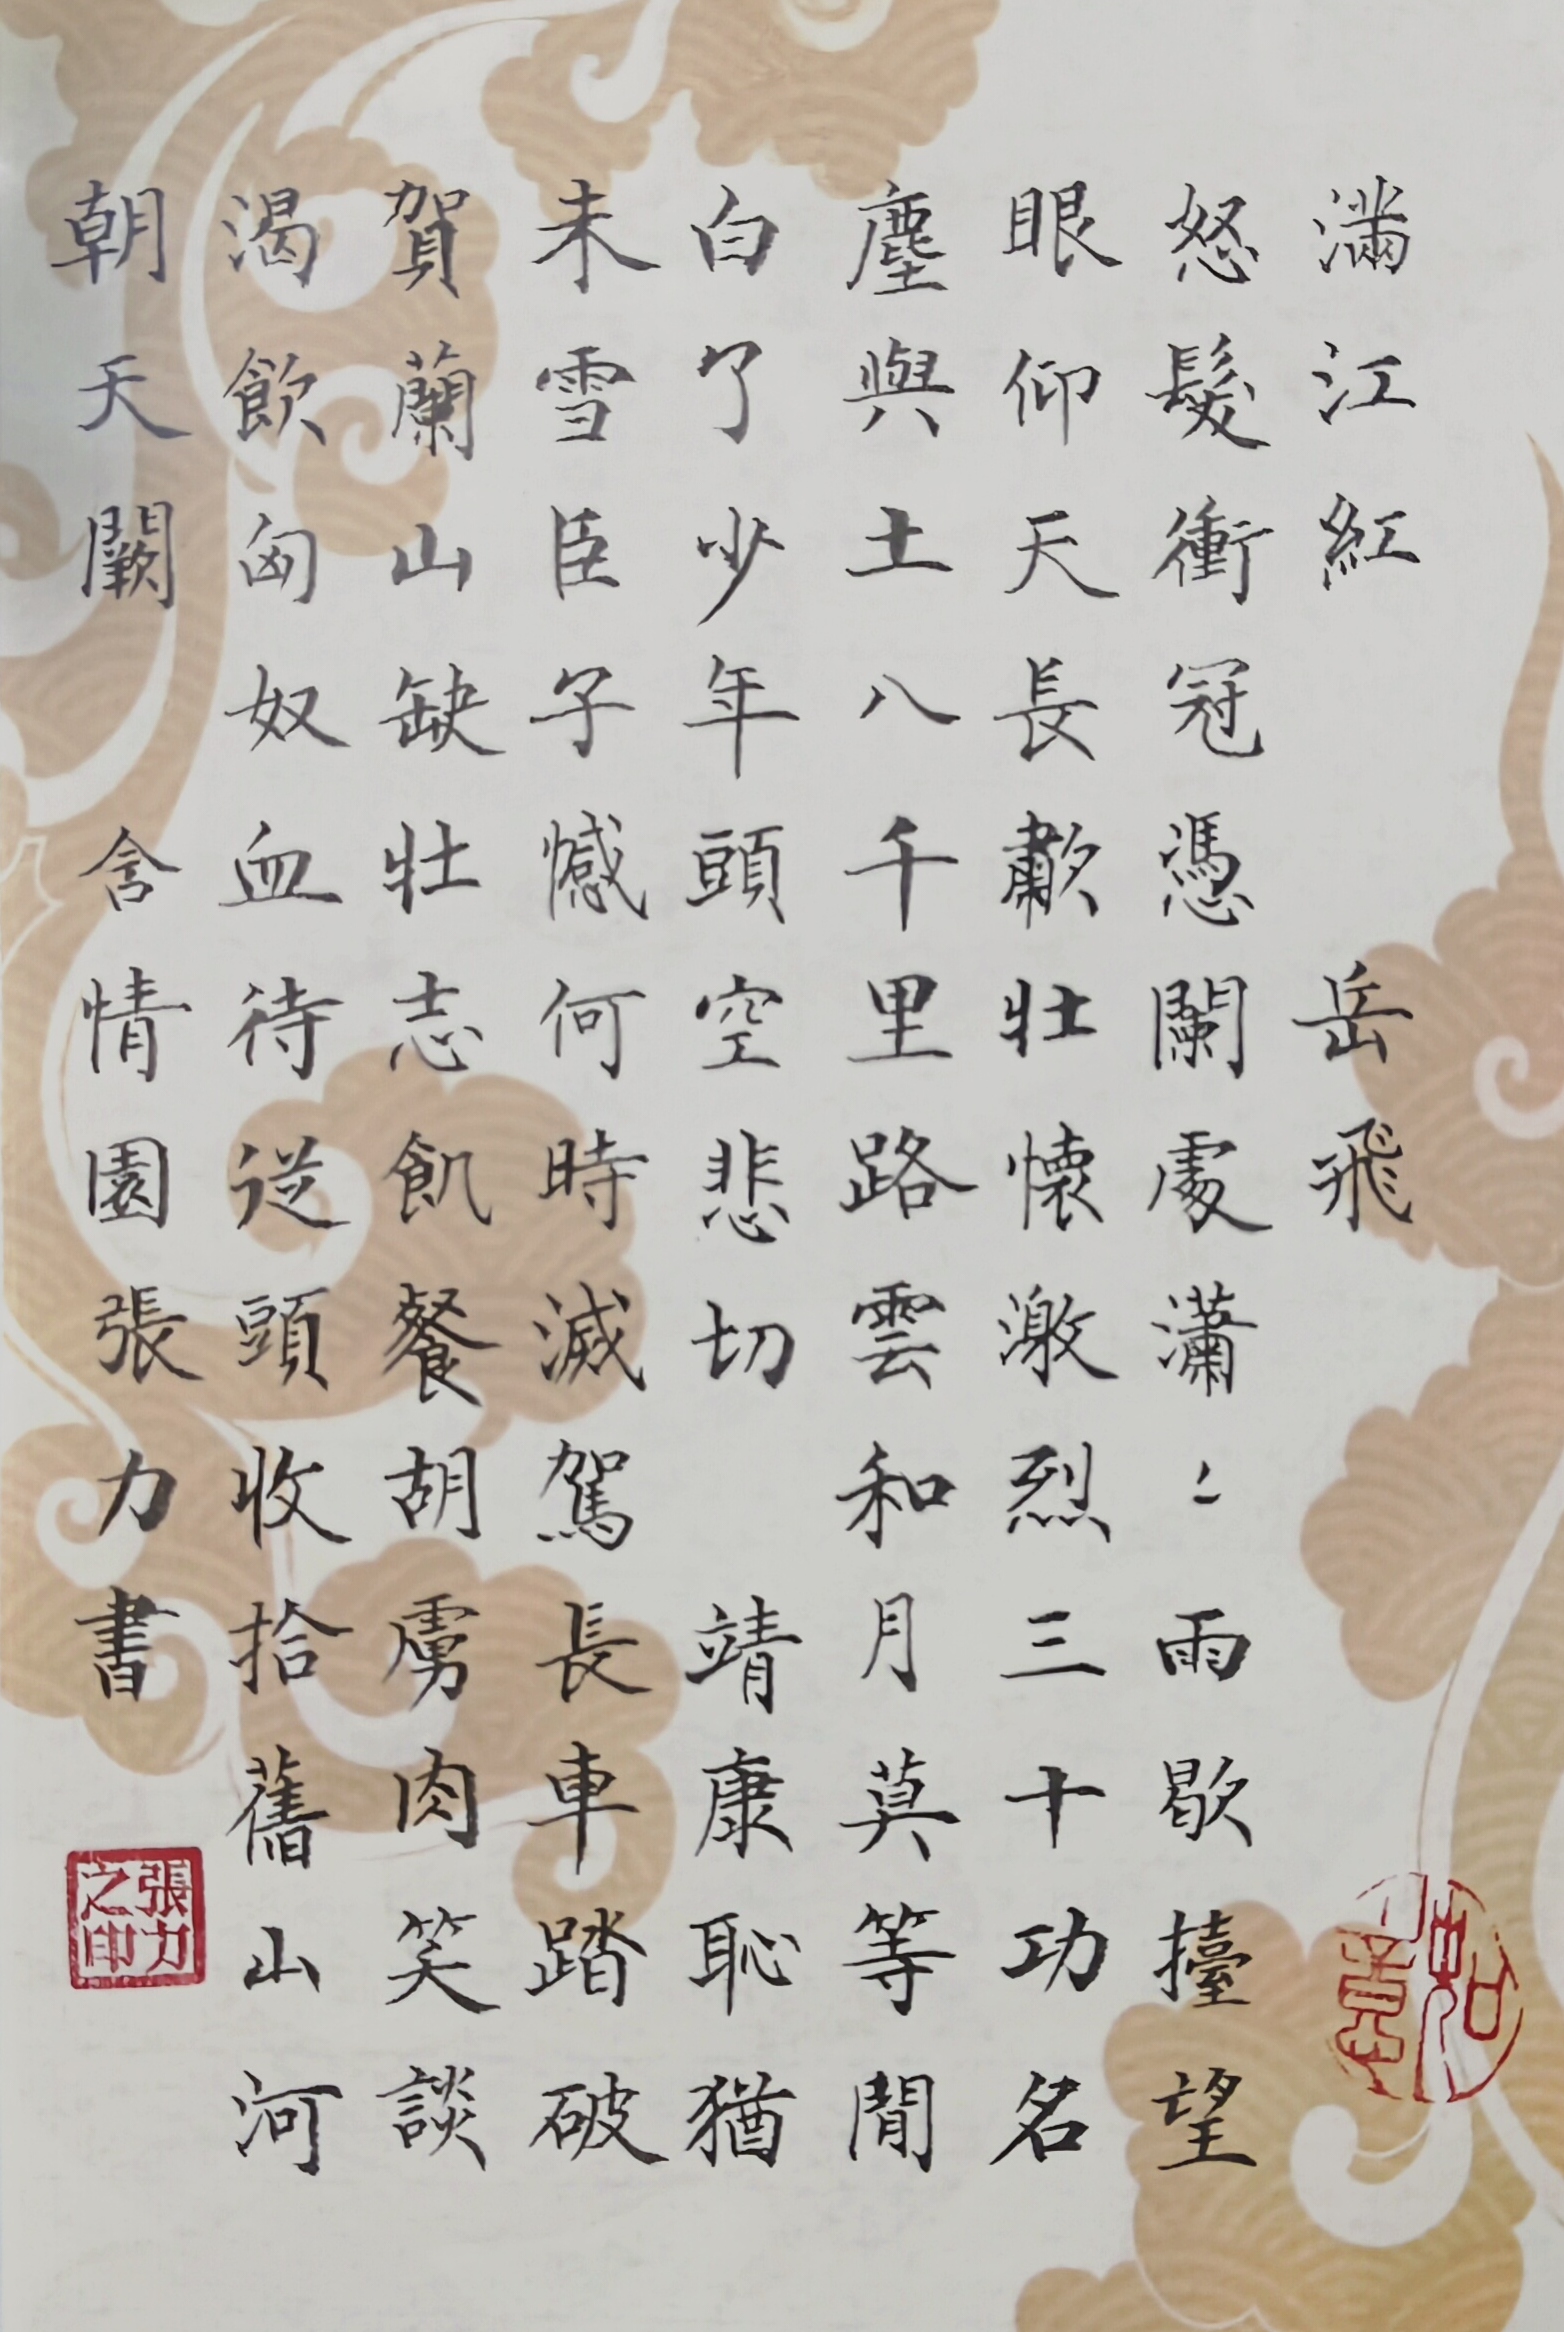 滿江紅 岳飛
怒髮衝冠憑闌處瀟〻雨歇擡望
眼仰天長歗壯懷激烈三十功名
塵與土八千里路雲和月莫等閒
白了少年頭空悲切 靖康恥猶
未雪臣子憾何時滅駕長車踏破
賀蘭山缺壯志飢餐胡虜肉笑談
渴飲匈奴血待從頭收拾舊山河
朝天闕 含情園張力書
張力之印